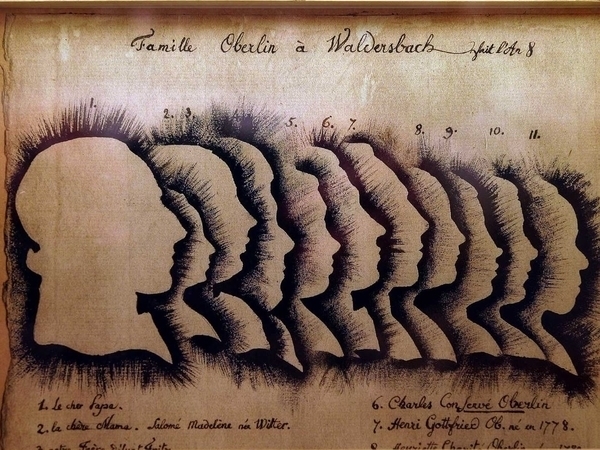 Famille Oberlin à Waldersbach fait l'An 8
1. 2. 3. 5. 6. 7. 8. 9. 10. 11.
1. Le cher Papa.
2. la chère Mama. Salomé Madelène née Witter.
6. Charles Conservé Oberlin
7. Henri Gottfried Ob. né en 1778.